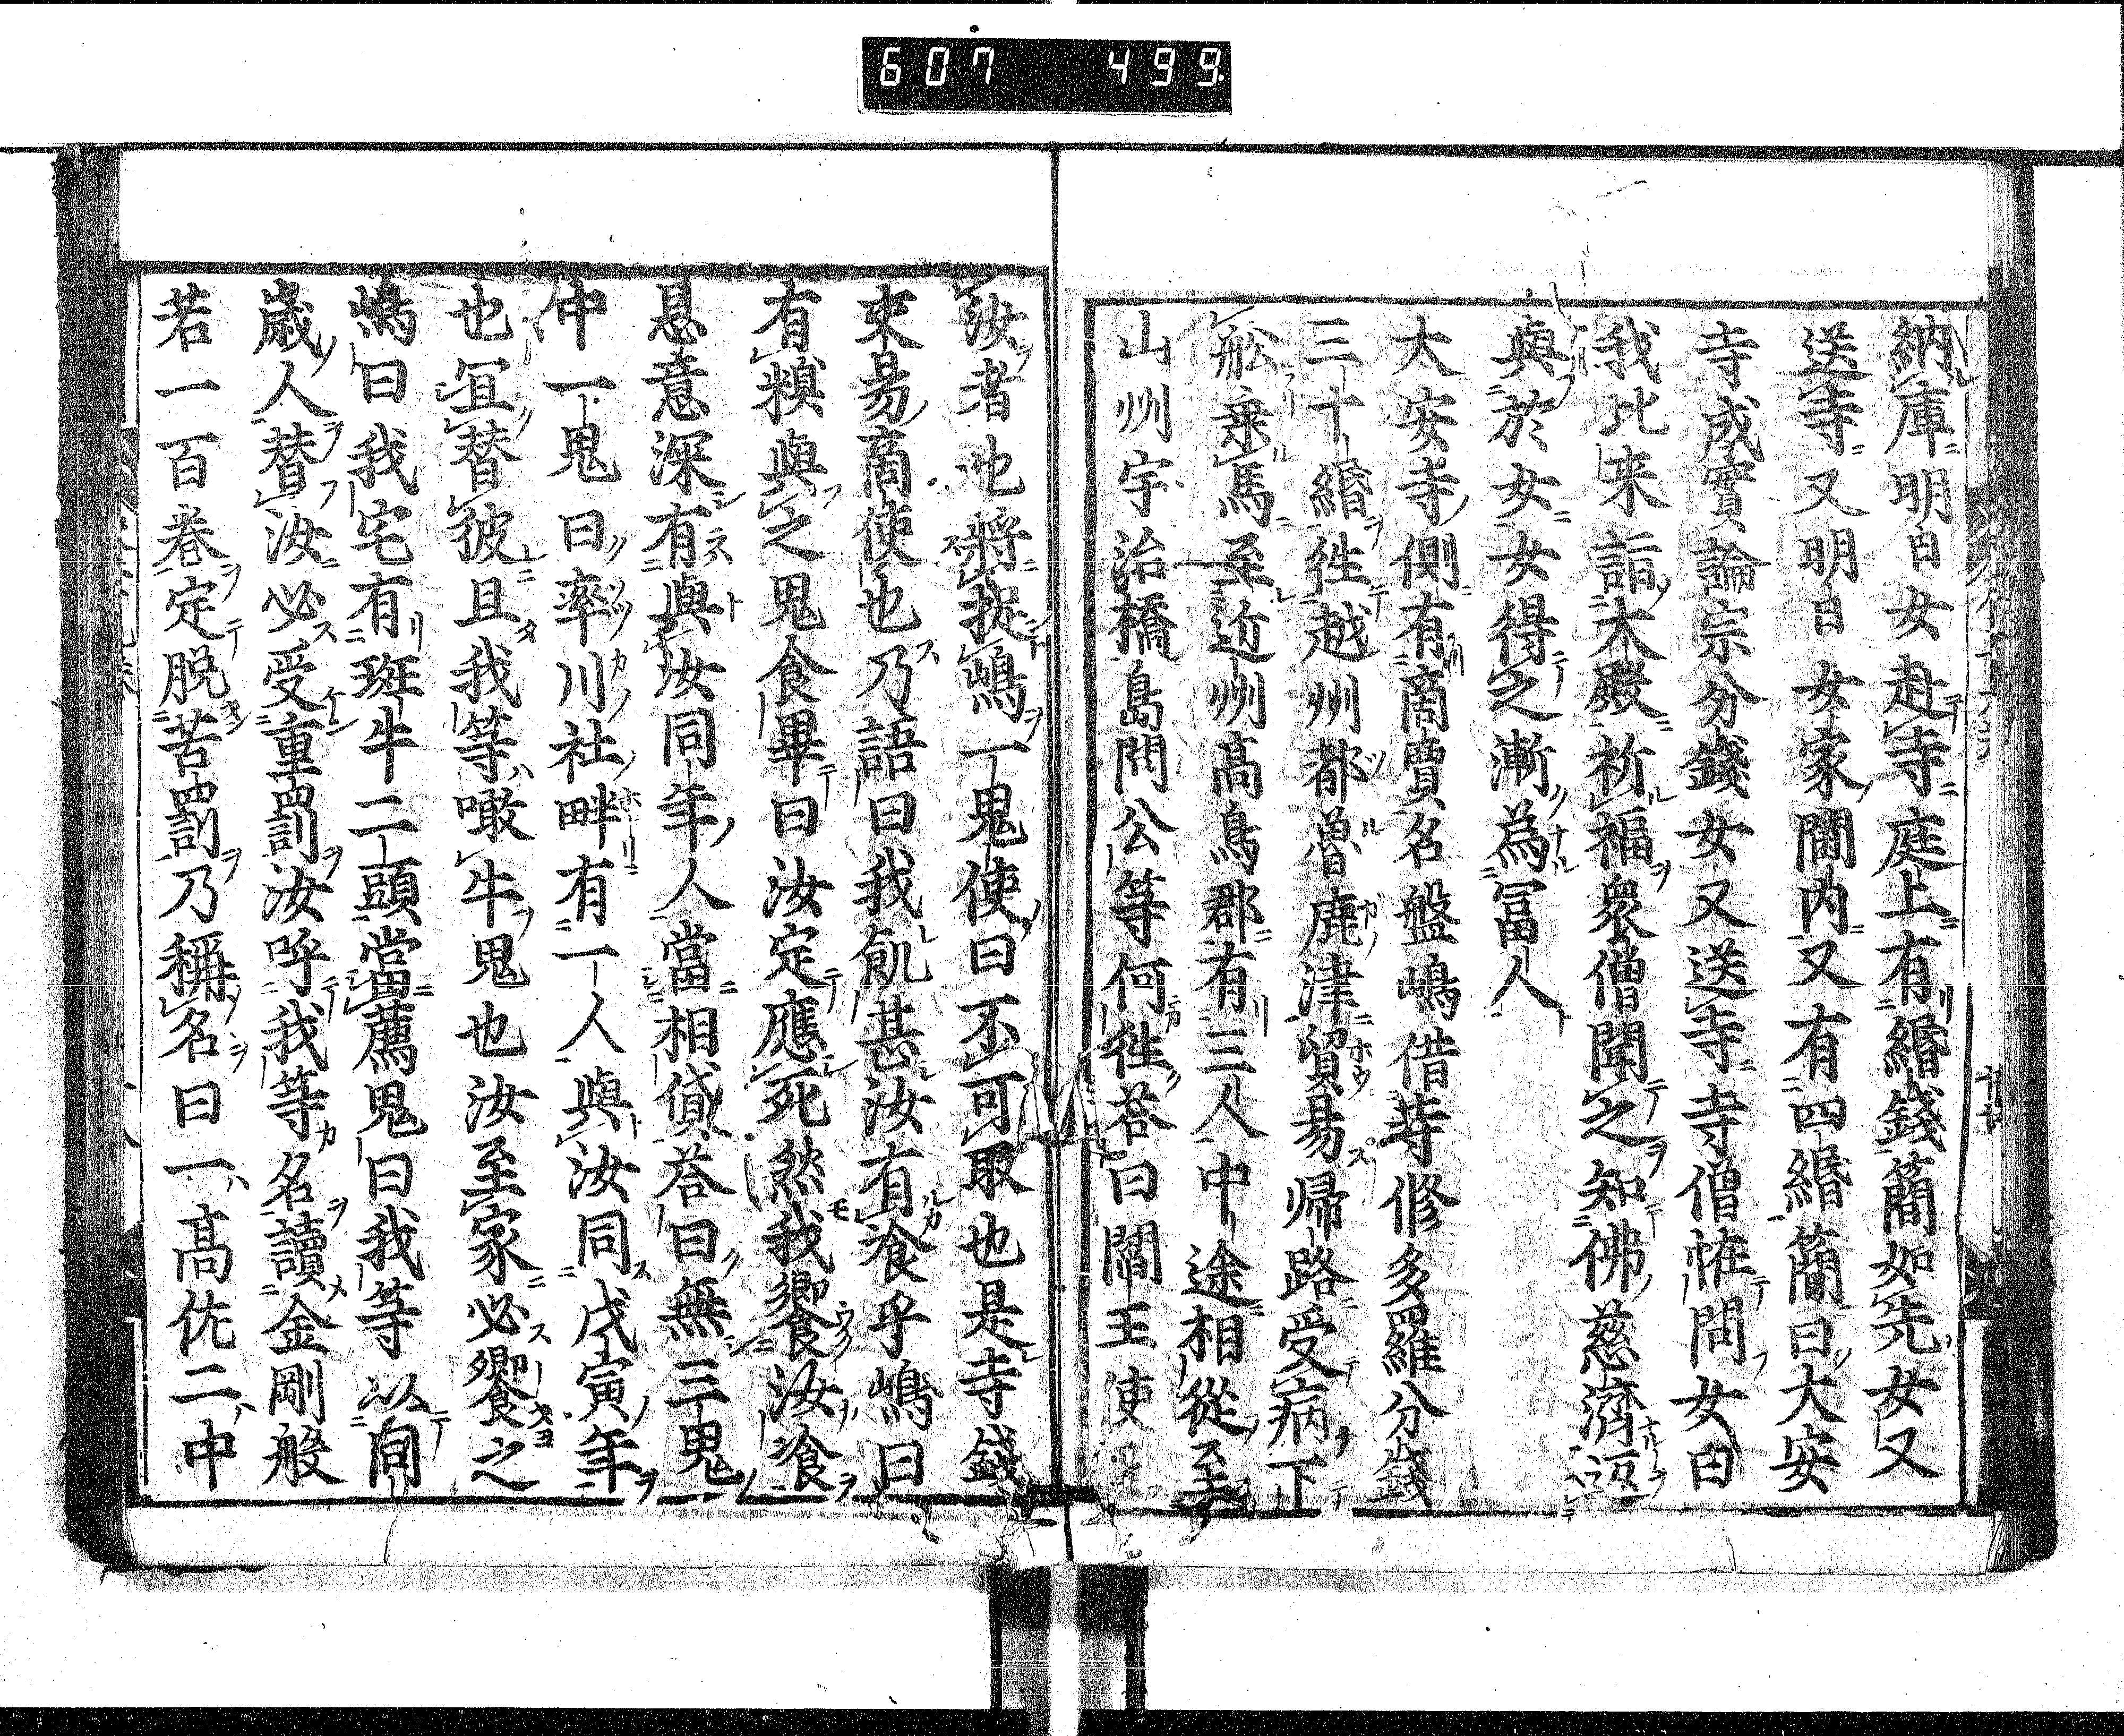 607 499
納庫明日女赴寺庭上有緡錢簡如先女又
送寺又明日女家閫内又有四緡簡曰大安
寺成實論宗分錢女又送寺寺僧恠問女曰
我比来詣大殿祈福衆僧聞之知佛慈濟返
與於女女得之漸為冨人
太安寺側有商賈名盤嶋借寺修多羅分錢
三十緡徃越州都魯鹿津貿易帰路受病下
舩乗馬至近州髙鳥郡有三人中途相從至
山州宇治橋島問公等何徃荅曰閻王使
汝者也將捉嶋一鬼使曰不可取也是寺錢
吏易商使也乃語曰我飢甚汝有飡乎嶋曰
有糗與之鬼食畢曰汝定應死然我饗汝飡
息意深有與汝同年人當相貸荅曰無三鬼
中一鬼曰率川社畔有一人與汝同戊寅年
也冝替彼且我等噉牛鬼也汝至家必饗之
嶋曰我宅有斑牛二頭當薦鬼曰我等以同
歳人替汝必受重罰汝呼我等名讀金剛般
若一百巻定脱苦罰乃稱名曰一髙佐二中